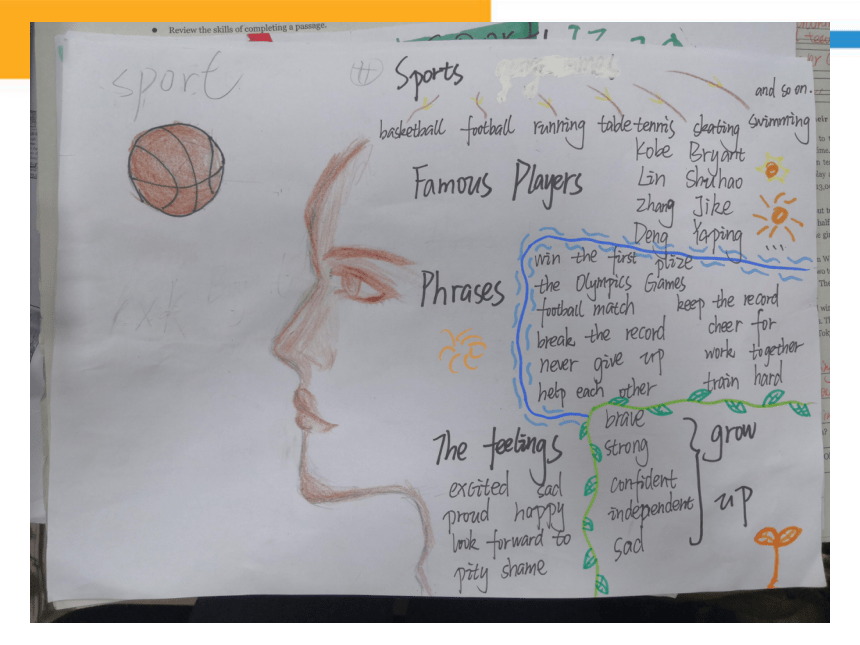 Review the skills of completing a passage.
sport
Sports
and so on.
basketball football running table tennis skating swimming
Famous Players
Kobe Bryant
Lin Shuhao
Zhang Jike
Deng Yaping
...
Phrases
win the first prize
the Olympics Games
football match keep the record
break the record cheer for
never give up work together
help each other train hard
The feelings
excited sad
proud happy
look forward to
pity shame
brave
strong
confident
independent
sad
grow
up